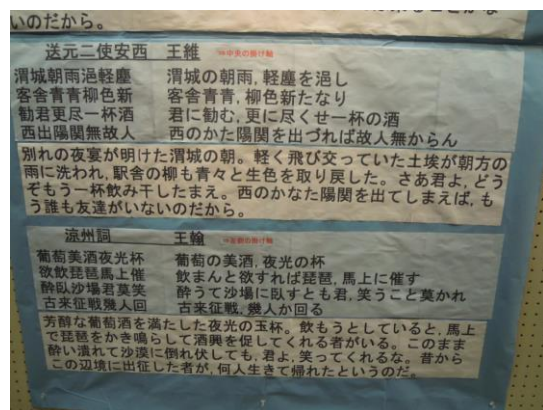 いのだから。
送元二使安西　王維　⇒中央の掛け軸
渭城朝雨浥軽塵　渭城の朝雨,軽塵を浥し
客舎青青柳色新　客舎青青,柳色新たなり
勧君更尽一杯酒　君に勧む,更に尽くせ一杯の酒
西出陽関無故人　西のかた陽関を出づれば故人無からん
別れの夜宴が明けた渭城の朝。軽く飛び交っていた土埃が朝方の
雨に洗われ,駅舎の柳も青々と生色を取り戻した。さあ君よ,どう
ぞもう一杯飲み干したまえ。西のかなた陽関を出てしまえば,も
う誰も友達がいないのだから。
涼州詞　王翰
葡萄美酒夜光杯　葡萄の美酒,夜光の杯
欲飲琵琶馬上催　飲まんと欲すれば琵琶,馬上に催す
酔臥沙場君莫笑　酔うて沙場に臥すとも君,笑うこと莫かれ
古来征戦幾人回　古来征戦,幾人か回る
芳醇な葡萄酒を満たした夜光の玉杯。飲もうとしていると,馬上
で琵琶をかき鳴らして酒興を促してくれる者がいる。このまま
酔い潰れて沙漠に倒れ伏しても,君よ,笑ってくれるな。昔から
この辺境に出征した者が,何人生きて帰れたというのだ。